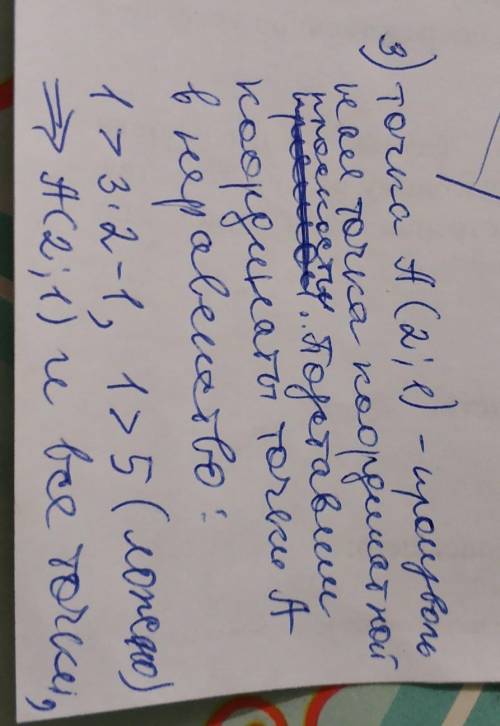 3) точка A(2;1) - произволь
ная точка координатной
плоскости. Подставим
координаты точки A
в неравенство:
1 > 3·2-1, 1 > 5 (ложно)
⇒ A(2;1) и все точки,